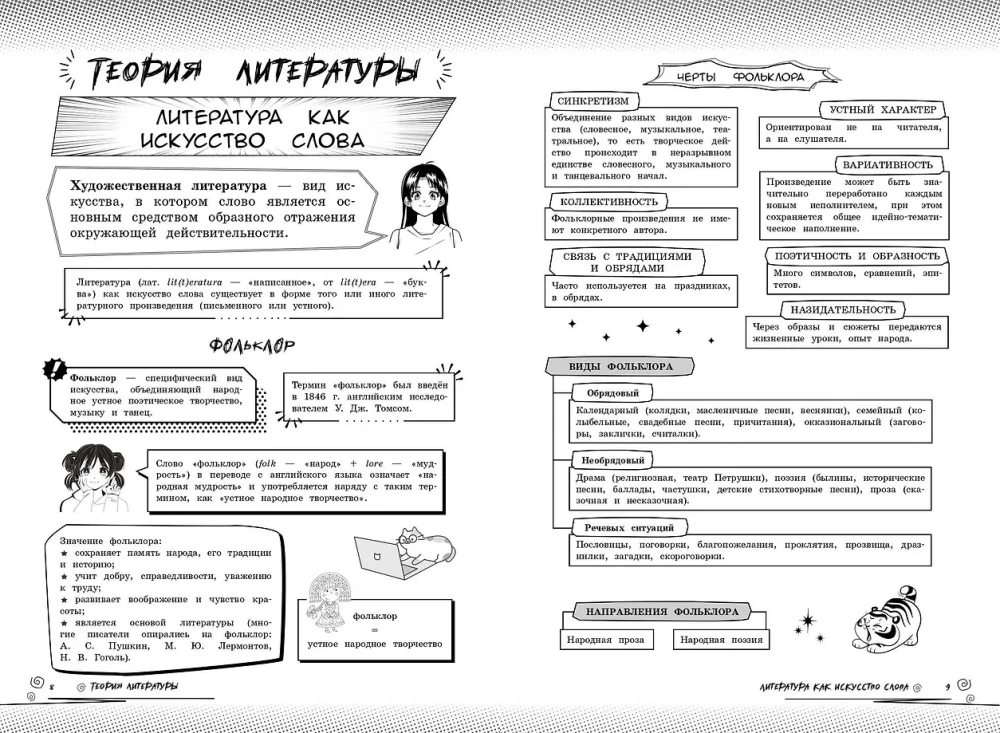 ТЕОРИЯ ЛИТЕРАТУРЫ
ЛИТЕРАТУРА КАК
ИСКУССТВО СЛОВА
Художественная литература — вид ис-
кусства, в котором слово является ос-
новным средством образного отражения
окружающей действительности.
Литература (лат. lit(t)eratura — «написанное», от lit(t)era — «бук-
ва») как искусство слова существует в форме того или иного лите-
ратурного произведения (письменного или устного).
ФОЛЬКЛОР
!
Фольклор — специфический вид
искусства, объединяющий народ-
ное устное поэтическое творчество,
музыку и танец.
Термин «фольклор» был введён
в 1846 г. английским исследо-
вателем У. Дж. Томсом.
Слово «фольклор» (folk — «народ» + lore — «муд-
рость») в переводе с английского языка означает «на-
родная мудрость» и употребляется наряду с таким тер-
мином, как «устное народное творчество».
Значение фольклора:
★ сохраняет память народа, его традиции
и историю;
★ учит добру, справедливости, уважению
к труду;
★ развивает воображение и чувство кра-
соты;
★ является основой литературы (мно-
гие писатели опирались на фольклор:
А. С. Пушкин, М. Ю. Лермонтов,
Н. В. Гоголь).
фольклор
=
устное народное творчество
8 ТЕОРИЯ ЛИТЕРАТУРЫ
ЧЕРТЫ ФОЛЬКЛОРА
СИНКРЕТИЗМ
Объединение разных видов искус-
ства (словесное, музыкальное, теа-
тральное), то есть творческое дей-
ство происходит в неразрывном
единстве словесного, музыкального
и танцевального начал.
КОЛЛЕКТИВНОСТЬ
Фольклорные произведения не име-
ют конкретного автора.
СВЯЗЬ С ТРАДИЦИЯМИ
И ОБРЯДАМИ
Часто используется на праздниках,
в обрядах.
УСТНЫЙ ХАРАКТЕР
Ориентирован не на читателя,
а на слушателя.
ВАРИАТИВНОСТЬ
Произведение может быть зна-
чительно переработано каждым
новым исполнителем, при этом
сохраняется общее идейно-темати-
ческое наполнение.
ПОЭТИЧНОСТЬ И ОБРАЗНОСТЬ
Много символов, сравнений, эпи-
тетов.
НАЗИДАТЕЛЬНОСТЬ
Через образы и сюжеты передаются
жизненные уроки, опыт народа.
ВИДЫ ФОЛЬКЛОРА
Обрядовый
Календарный (колядки, масленичные песни, веснянки), семейный (ко-
лыбельные, свадебные песни, причитания), окказиональный (загово-
ры, заклички, считалки).
Необрядовый
Драма (религиозная, театр Петрушки), поэзия (былины, исторические
песни, баллады, частушки, детские стихотворные песни), проза (ска-
зочная и несказочная).
Речевых ситуаций
Пословицы, поговорки, благопожелания, проклятия, прозвища, драз-
нилки, загадки, скороговорки.
НАПРАВЛЕНИЯ ФОЛЬКЛОРА
Народная проза
Народная поэзия
ЛИТЕРАТУРА КАК ИСКУССТВО СЛОВА 9